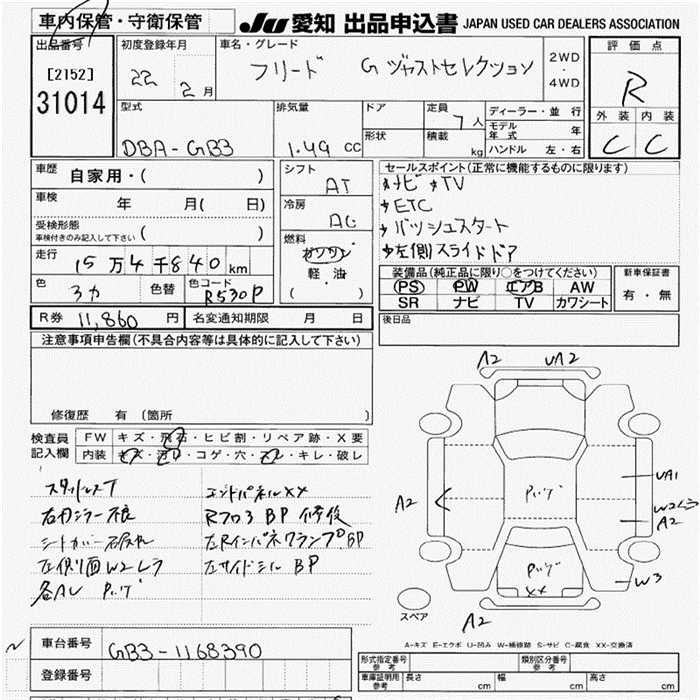 車内保管・守衛保管
JU 愛知 出品申込書 JAPAN USED CAR DEALERS ASSOCIATION
出品番号
[2152]
31014
初度登録年月
22 2月
車名・グレード
フリード G ジャストセレクション
2WD
・
4WD
評価点
R
外装 内装
C C
型式
DBA-GB3
排気量
1.49 cc
ドア
形状
定員
7人
積載
kg
ディーラー・並行
モデル年式 年
ハンドル 左・右
車歴
自家用・( )
車検 年 月( 日)
受検形態
車検付きのみ記入して下さい ( )
走行 15万4千840km
色 色替 色コード R530P
R券 11,860円 名変通知期限 月 日
シフト
AT
冷房
AC
燃料
ガソリン
軽油
( )
セールスポイント(正常に機能するものに限ります)
ナビ TV
ETC
プッシュスタート
左側スライドドア
装備品(純正品に限り○をつけてください)
PS PW エアB AW
SR ナビ TV カワシート
新車保証書
有・無
後日品
注意事項申告欄(不具合内容等は具体的に記入して下さい)
修復歴 有 (箇所 )
検査員
記入欄
FW キズ・飛石・ヒビ割・リペア跡・X要
内装 キズ・汚れ・コゲ・穴・スレ・キレ・破レ
スタッドレスT
右カラー不良
シートカバー
左側面W2
各AU
エンドパネルXX
Rフロア BP 修復
左Rインパネクランプ BP
左サイドシル BP
A2 UA2
A2
UA1
W2
A2
W3
XX
A2
スペア
A-キズ E-エクボ U-凹み W-補修跡 S-サビ C-腐食 XX-交換済
車台番号
GB3-1168390
登録番号
形式指定番号
参考
類別区分番号
参考
車庫証明用
参考
長さ cm 幅 cm 高さ cm